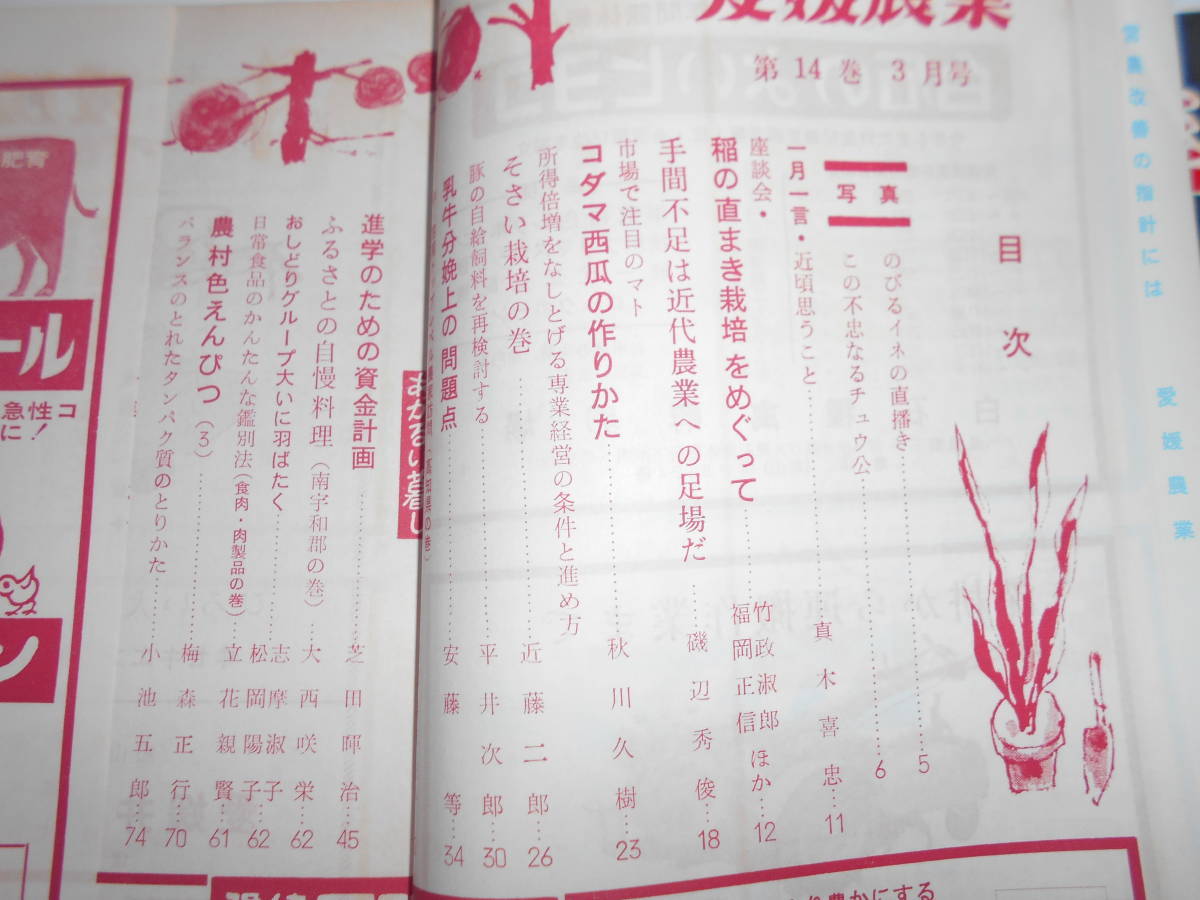 愛媛農業
第14巻 3月号
営農改善の指針には 愛媛農業
目次
写真
のびるイネの直播き……5
この不忠なるチュウ公……6
一月一言・近頃思うこと……真木喜忠…11
座談会・
稲の直まき栽培をめぐって……竹政淑郎 福岡正信 ほか…12
手間不足は近代農業への足場だ……磯辺秀俊…18
市場で注目のマト
コダマ西瓜の作りかた……秋川久樹…23
所得倍増をなしとげる専業経営の条件と進め方
そさい栽培の巻……近藤二郎…26
豚の自給飼料を再検討する……平井次郎…30
乳牛分娩上の問題点……安藤等…34
あかるい暮し
進学のための資金計画……芝田暉治…45
ふるさとの自慢料理(南宇和郡の巻)…大西咲栄…62
おしどりグループ大いに羽ばたく……志摩淑子 松岡陽子…62
日常食品のかんたんな鑑別法(食肉・肉製品の巻)…立花親賢…61
農村色えんぴつ(3)……梅森正行…70
バランスのとれたタンパク質のとりかた……小池五郎…74
肥育
ール
急性コ
に!
ン
豊かにする